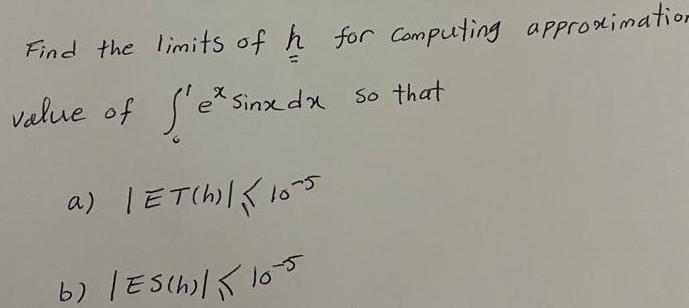 Find the limits of h for computing approximation
value of ∫₀¹ eˣ sinx dx so that
a) |ET(h)| ≤ 10⁻⁵
b) |ES(h)| ≤ 10⁻⁵